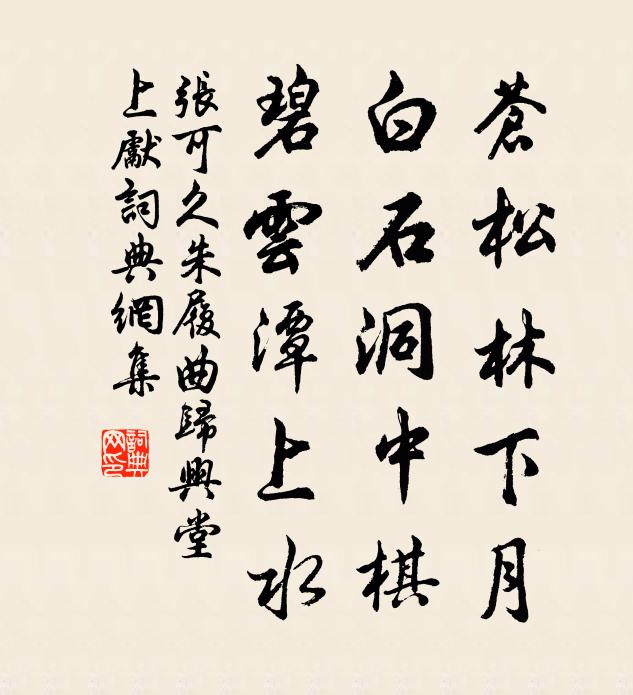 蒼松林下月
白石洞中棋
碧雲潭上水
張可久朱履曲歸興堂
上獻詞典網集
詞典网印